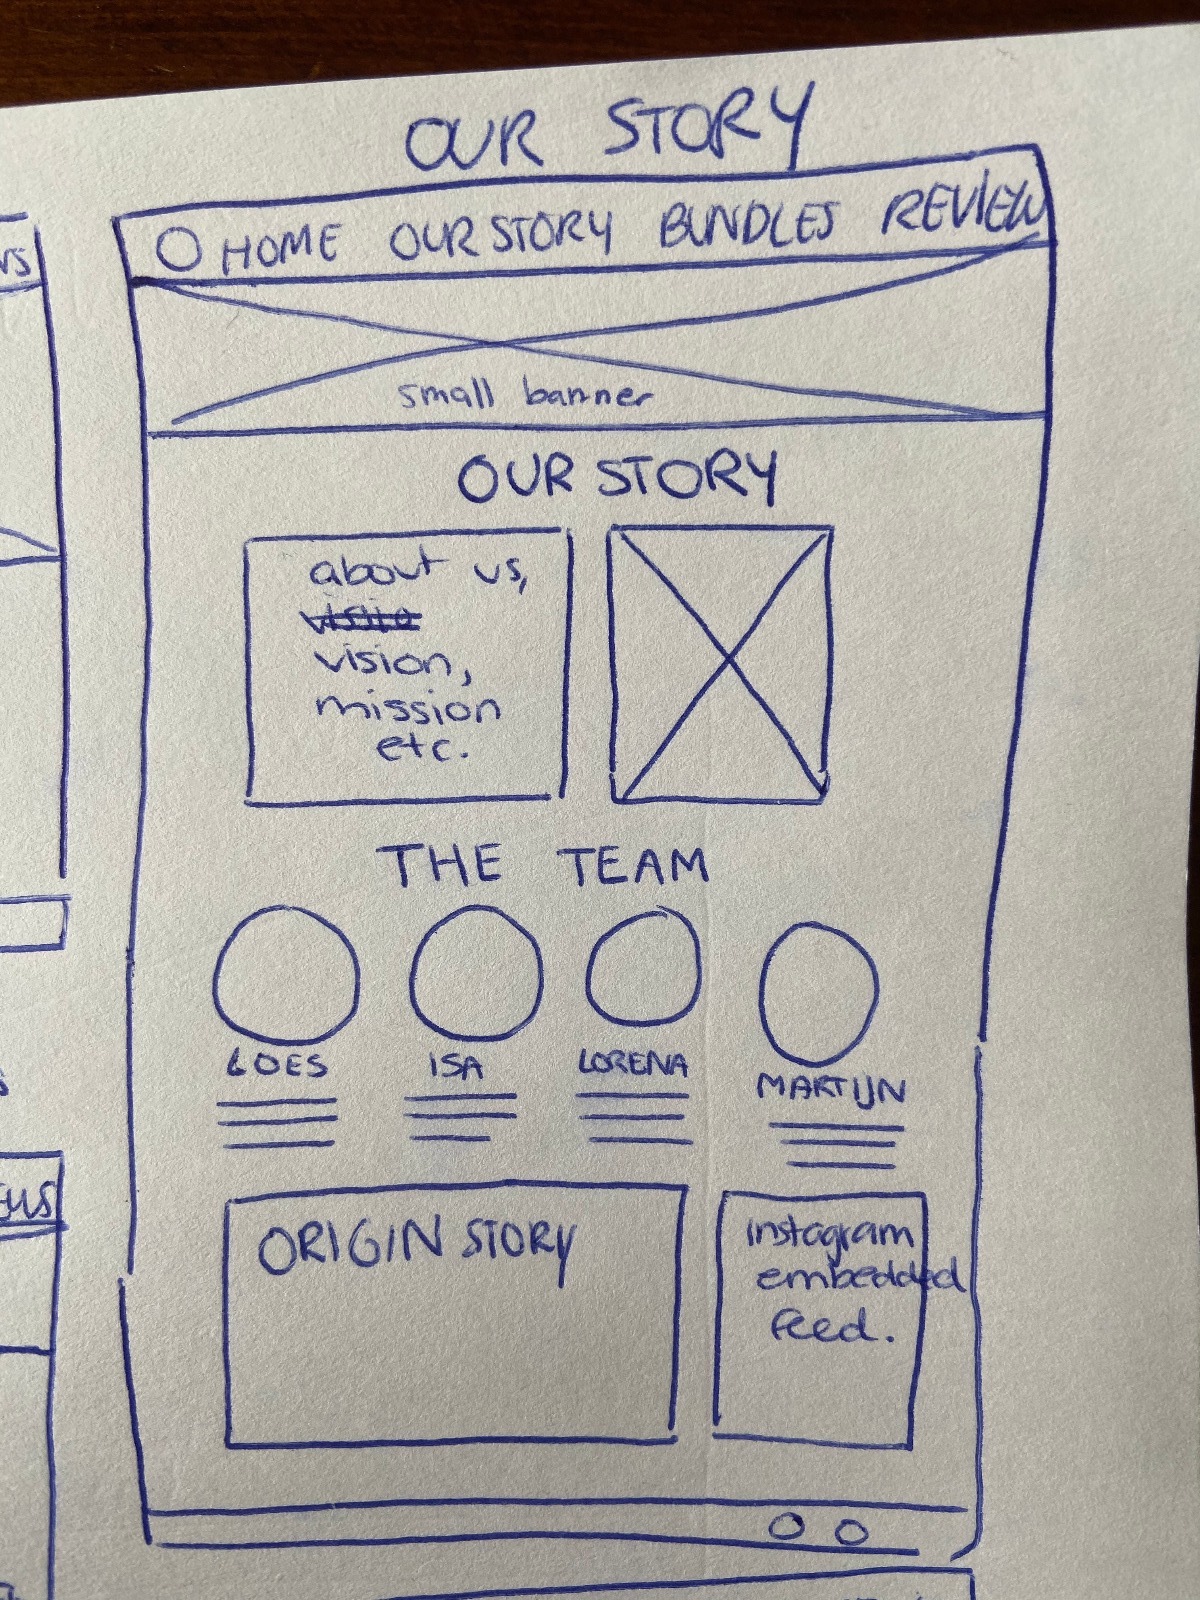 OUR STORY
HOME OUR STORY BUNDLES REVIEW
small banner
OUR STORY
about us,
vision,
mission
etc.
THE TEAM
LOES ISA LORENA MARTIJN
ORIGIN STORY
instagram
embedded
feed.